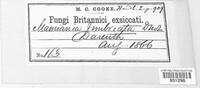 M. C. COOKE.
Fungi Britannici, exsiccati.
Mamiania fimbriata
Darenth
Aug 1866
No. 113